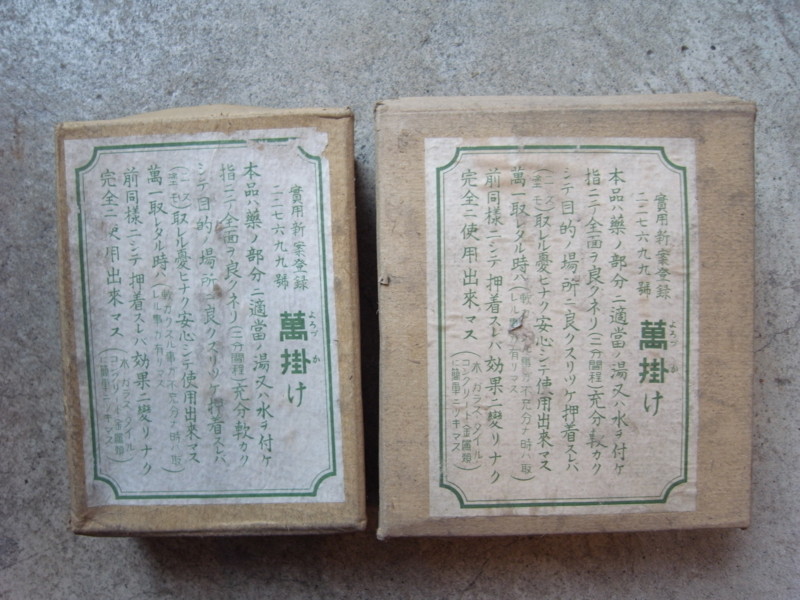 實用新案登録
二二七六九九號
よろづ か
萬掛け
本品ハ藥ノ部分ニ適當ノ湯又ハ水ヲ付ケ
指ニテ全面ヲ良クネリ(二分間程)充分軟カク
シテ目的ノ場所ニ良クスリツケ押着スレバ
取レル憂ヒナク安心シテ使用出來マス
萬一取レタル時ハ(軟カクスル事ガ不充分ナ時ハ取
レル事ガ有リマス)
前同様ニシテ押着スレバ効果ニ變リナク
完全ニ使用出來マス(木、ガラス、タイル
コンクリート金屬類
ニ簡單ニツキマス)
實用新案登録
二二七六九九號
よろづ か
萬掛け
本品ハ藥ノ部分ニ適當ノ湯又ハ水ヲ付ケ
指ニテ全面ヲ良クネリ(二分間程)充分軟カク
シテ目的ノ場所ニ良クスリツケ押着スレバ
取レル憂ヒナク安心シテ使用出來マス
萬一取レタル時ハ(軟カクスル事ガ不充分ナ時ハ取
レル事ガ有リマス)
前同様ニシテ押着スレバ効果ニ變リナク
完全ニ使用出來マス(木、ガラス、タイル
コンクリート金屬類
ニ簡單ニツキマス)